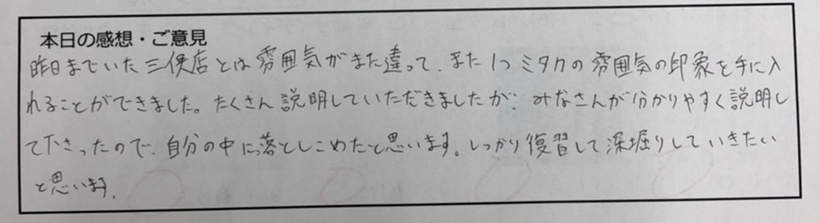 本日の感想・ご意見
昨日までいた三俣店とは雰囲気がまた違って、また1つミタカの雰囲気の印象を手に入
れることができました。たくさん説明していただきましたが、みなさんが分かりやすく説明し
て下さったので、自分の中に落としこめたと思います。しっかり復習して深堀りしていきたい
と思います。